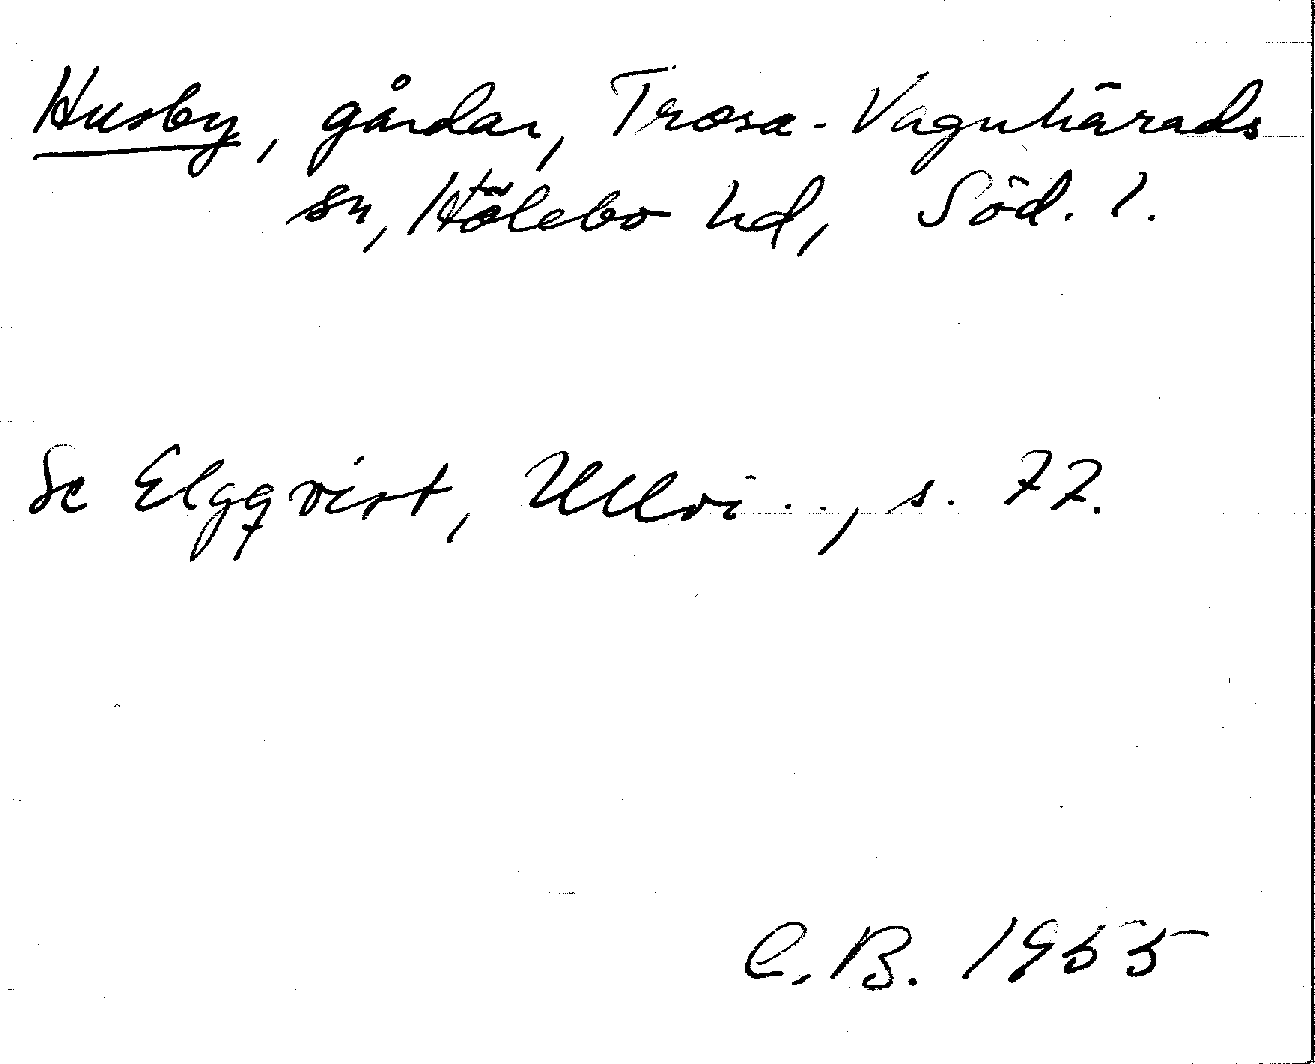 Husby, gårdar, Trosa-Vagnhärads
sn, Hölebo hd, Söd. l.
Se Elgqvist, Ullvi . . , s. 72.
C.B. 1955